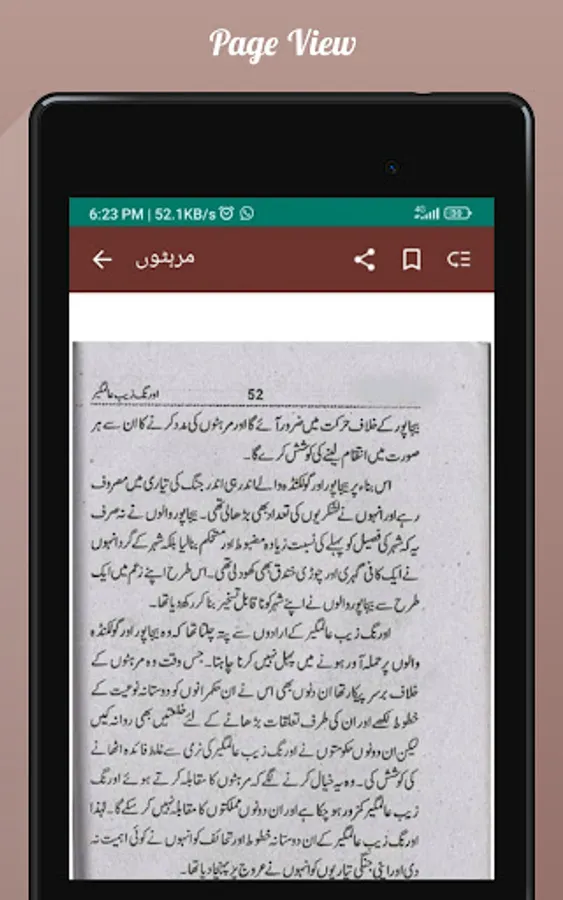 Page View
6:23 PM | 52.1KB/s
4G 39
مرہٹوں
52 اورنگ زیب عالمگیر
بیجاپور کے خلاف حرکت میں ضرور آئے گا اور مرہٹوں کی مدد کرنے کا ان سے ہر
صورت میں انتقام لینے کی کوشش کرے گا۔
اس بناء پر بیجاپور اور گولکنڈہ والے اندر ہی اندر جنگ کی تیاری میں مصروف
رہے اور انہوں نے لشکریوں کی تعداد بھی بڑھالی تھی۔ بیجاپور والوں نے نہ صرف
یہ کہ شہر کی فصیل کو پہلے کی نسبت زیادہ مضبوط اور مستحکم بنالیا بلکہ شہر کے گرد انہوں
نے ایک کافی گہری اور چوڑی خندق بھی کھود لی تھی۔ اس طرح اپنے زعم میں ایک
طرح سے بیجاپور والوں نے اپنے شہر کو ناقابل تسخیر بنا کر رکھ دیا تھا۔
اورنگ زیب عالمگیر کے ارادوں سے پتہ چلتا تھا کہ وہ بیجاپور اور گولکنڈہ
والوں پر حملہ آور ہونے میں پہل نہیں کرنا چاہتا۔ جس وقت وہ مرہٹوں کے
خلاف برسرپیکار تھا ان دنوں بھی اس نے ان حکمرانوں کو دوستانہ نوعیت کے
خطوط لکھے اور ان کی طرف تعلقات بڑھانے کے لئے خلعتیں بھی روانہ کیں
لیکن ان دونوں حکومتوں نے اورنگ زیب عالمگیر کی نرمی سے غلط فائدہ اٹھانے
کی کوشش کی۔ وہ یہ خیال کرنے لگے کہ مرہٹوں کا مقابلہ کرتے ہوئے اورنگ
زیب عالمگیر کمزور ہو چکا ہے اور ان دونوں مملکتوں کا مقابلہ نہیں کر سکے گا۔ لہٰذا
اورنگ زیب عالمگیر کے ان دوستانہ خطوط اور تحائف کو انہوں نے کوئی اہمیت نہ
دی اور اپنی جنگی تیاریوں کو انہوں نے عروج پر پہنچا دیا تھا۔